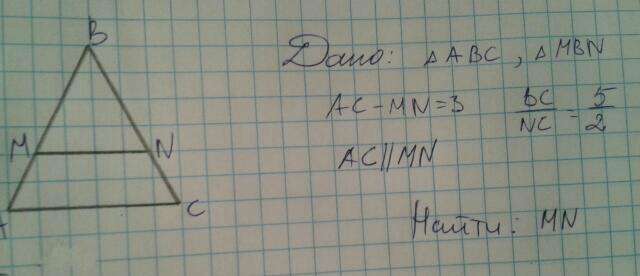 B
Дано: △ABC, △MBN
AC-MN=3 BC/NC=5/2
M N
AC||MN
A C
Найти: MN